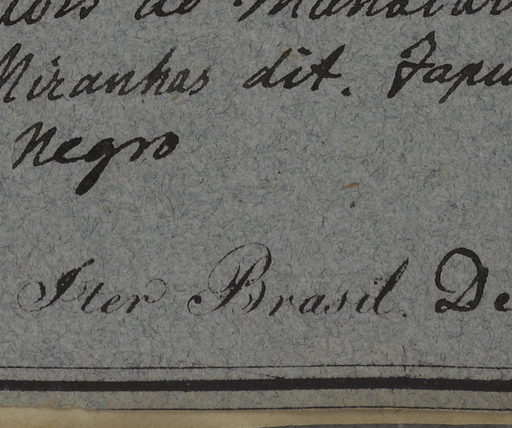 de
Miranhas dit. Japu
Negro
Iter Brasil. De